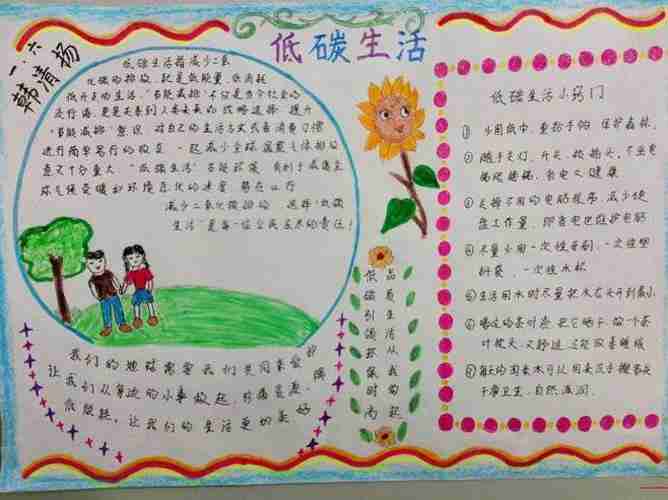 低碳生活
一、六
韩清扬
低碳生活指减少二氧
化碳的排放,就是低能量、低消耗
低开支的生活。"节能减排",不仅是当今社会的
流行语,更是关系到人类未来的战略选择。提升
"节能减排"意识,对自己的生活方式或者消费习惯
进行简单易行的改变,一起减少全球温室气体排放
意义十分重大。"低碳生活"节能环保,有利于减缓全
球气候变暖和环境恶化的速度,势在必行
减少二氧化碳排放,选择"低碳
生活"是每一位公民应尽的责任!
我们的地球需要我们共同来爱护
让我们从身边的小事做起,珍惜资源,降
低能耗,让我们的生活更加美好
低碳引领环保时尚
品质生活从我勾起
低碳生活小窍门
① 少用纸巾,重拾手帕,保护森林,
② 随手关灯、开关、拔插头,不坐电
梯爬楼梯,省电又健康
关掉不用的电脑程序,减少硬
盘工作量,即省电也维护电脑
④ 尽量少用一次性牙刷、一次性塑
料袋、一次性水杯
⑤ 生活用水时尽量把水龙头开到最小,
⑥ 喝过的茶叶渣,把它晒干,做个茶
叶枕头,又舒适,还能改善睡眠
于常卫生,自然滋润.